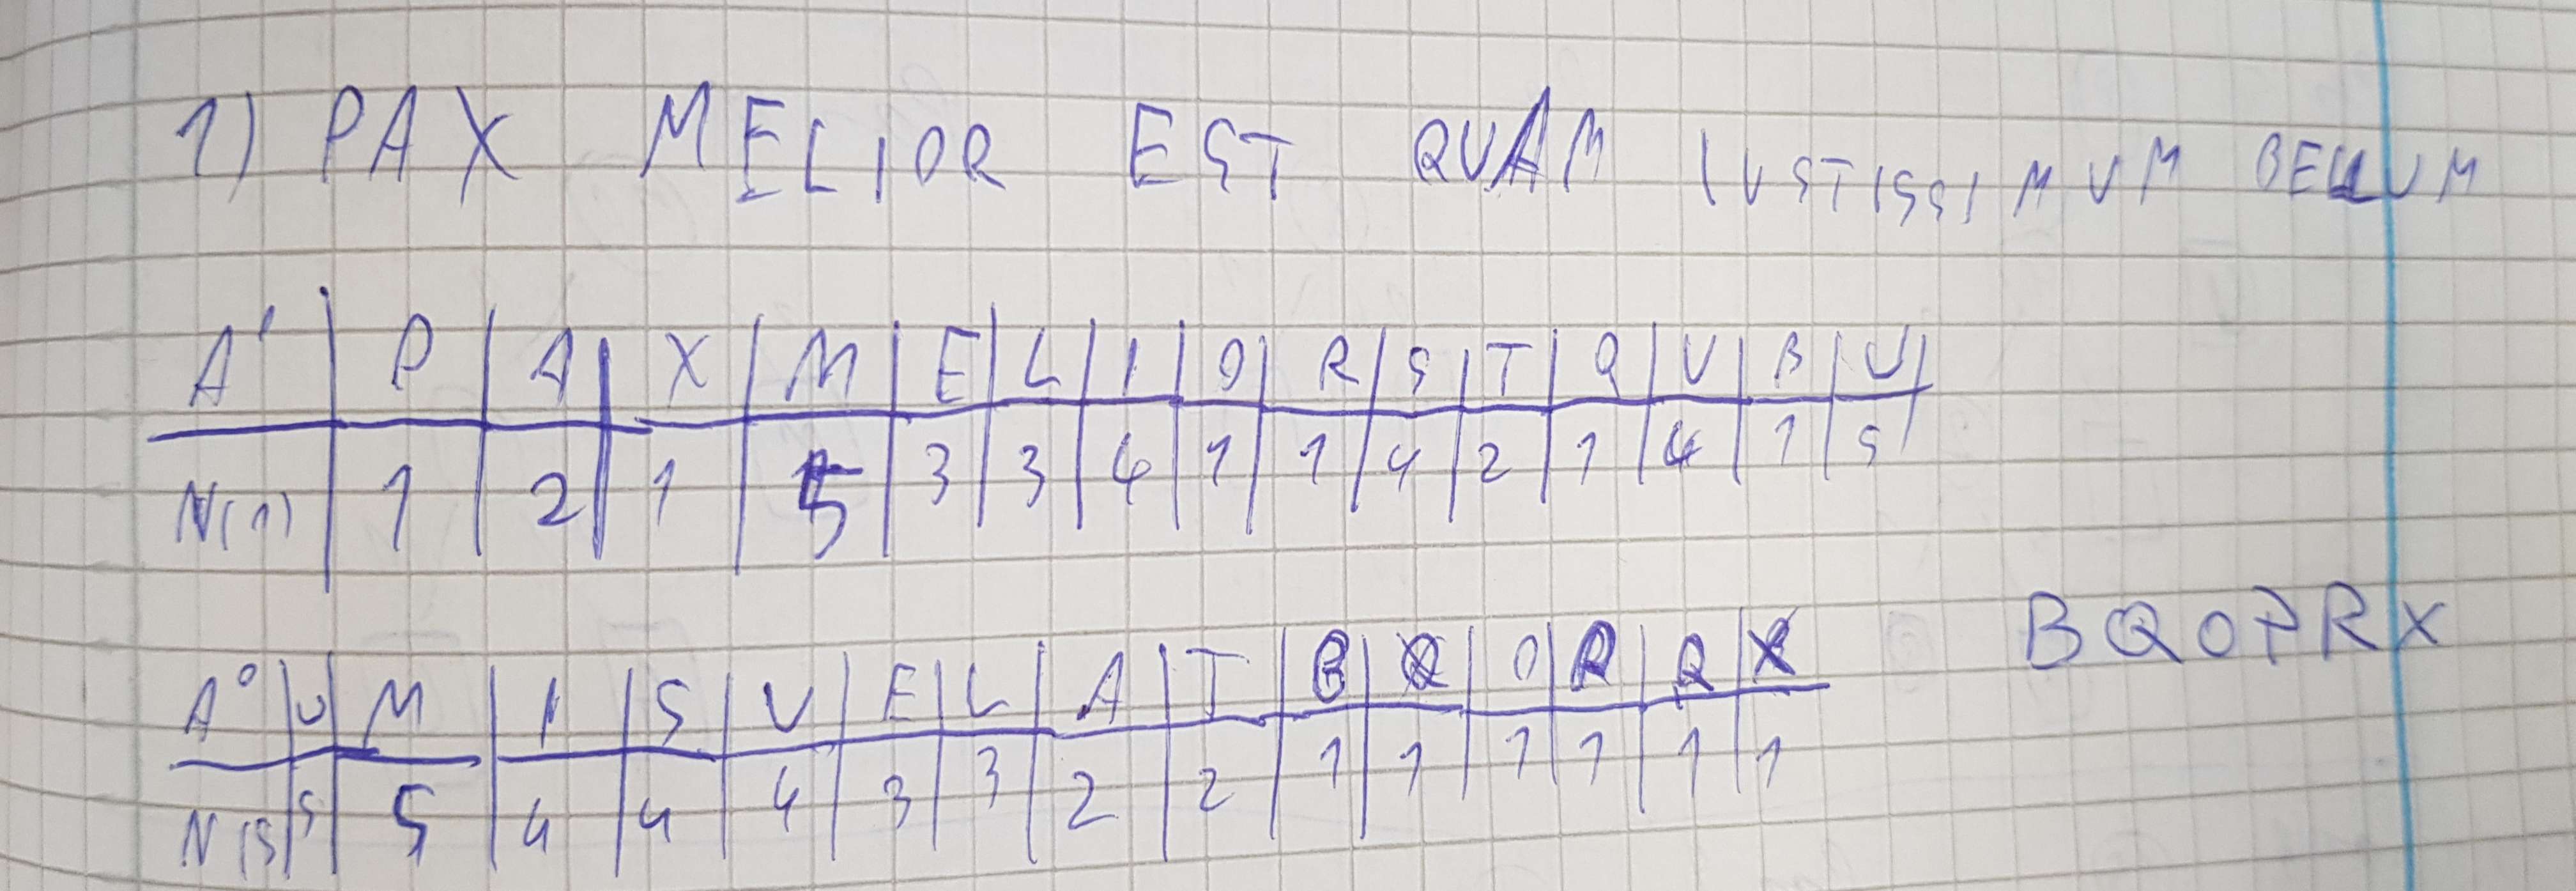 1) PAX MELIOR EST QUAM IUSTISSIMUM BELLUM
A' P A X M E L I O R S T Q V B U
N(1) 1 2 1 5 3 3 4 1 1 4 2 1 4 1 5
BQOPRX
A° U M I S V E L A T B Q O R X
N(S 5 5 4 4 4 3 3 2 2 1 1 1 1 1 1